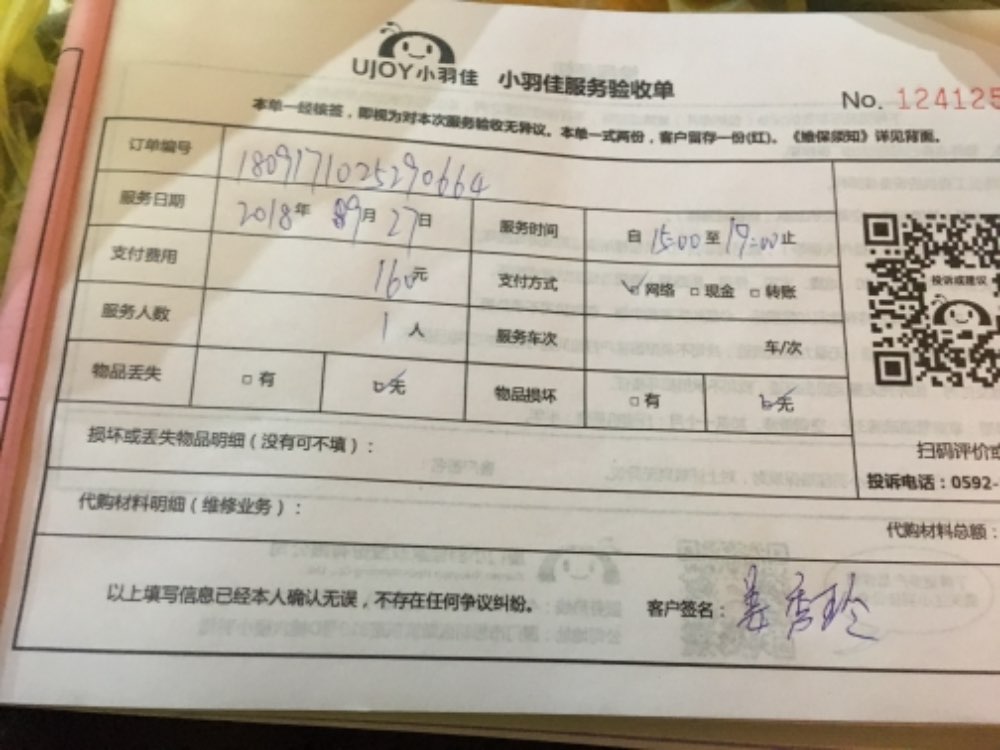 UJOY小羽佳 小羽佳服务验收单
No. 124125
本单一经核签，即视为对本次服务验收无异议。本单一式两份，客户留存一份(红)。《赔保须知》详见背面。
订单编号 180917102529066４
服务日期 2018年 9月 27日 服务时间 自 15:00 至 17:00 止
支付费用 160元 支付方式 ☑网络 □现金 □转账
服务人数 1 人 服务车次 车/次
物品丢失 □有 ☑无 物品损坏 □有 ☑无
投诉或建议
损坏或丢失物品明细（没有可不填）：
扫码评价或
投诉电话：0592-
代购材料明细（维修业务）：
代购材料总额：
以上填写信息已经本人确认无误，不存在任何争议纠纷。 客户签名：姜秀玲